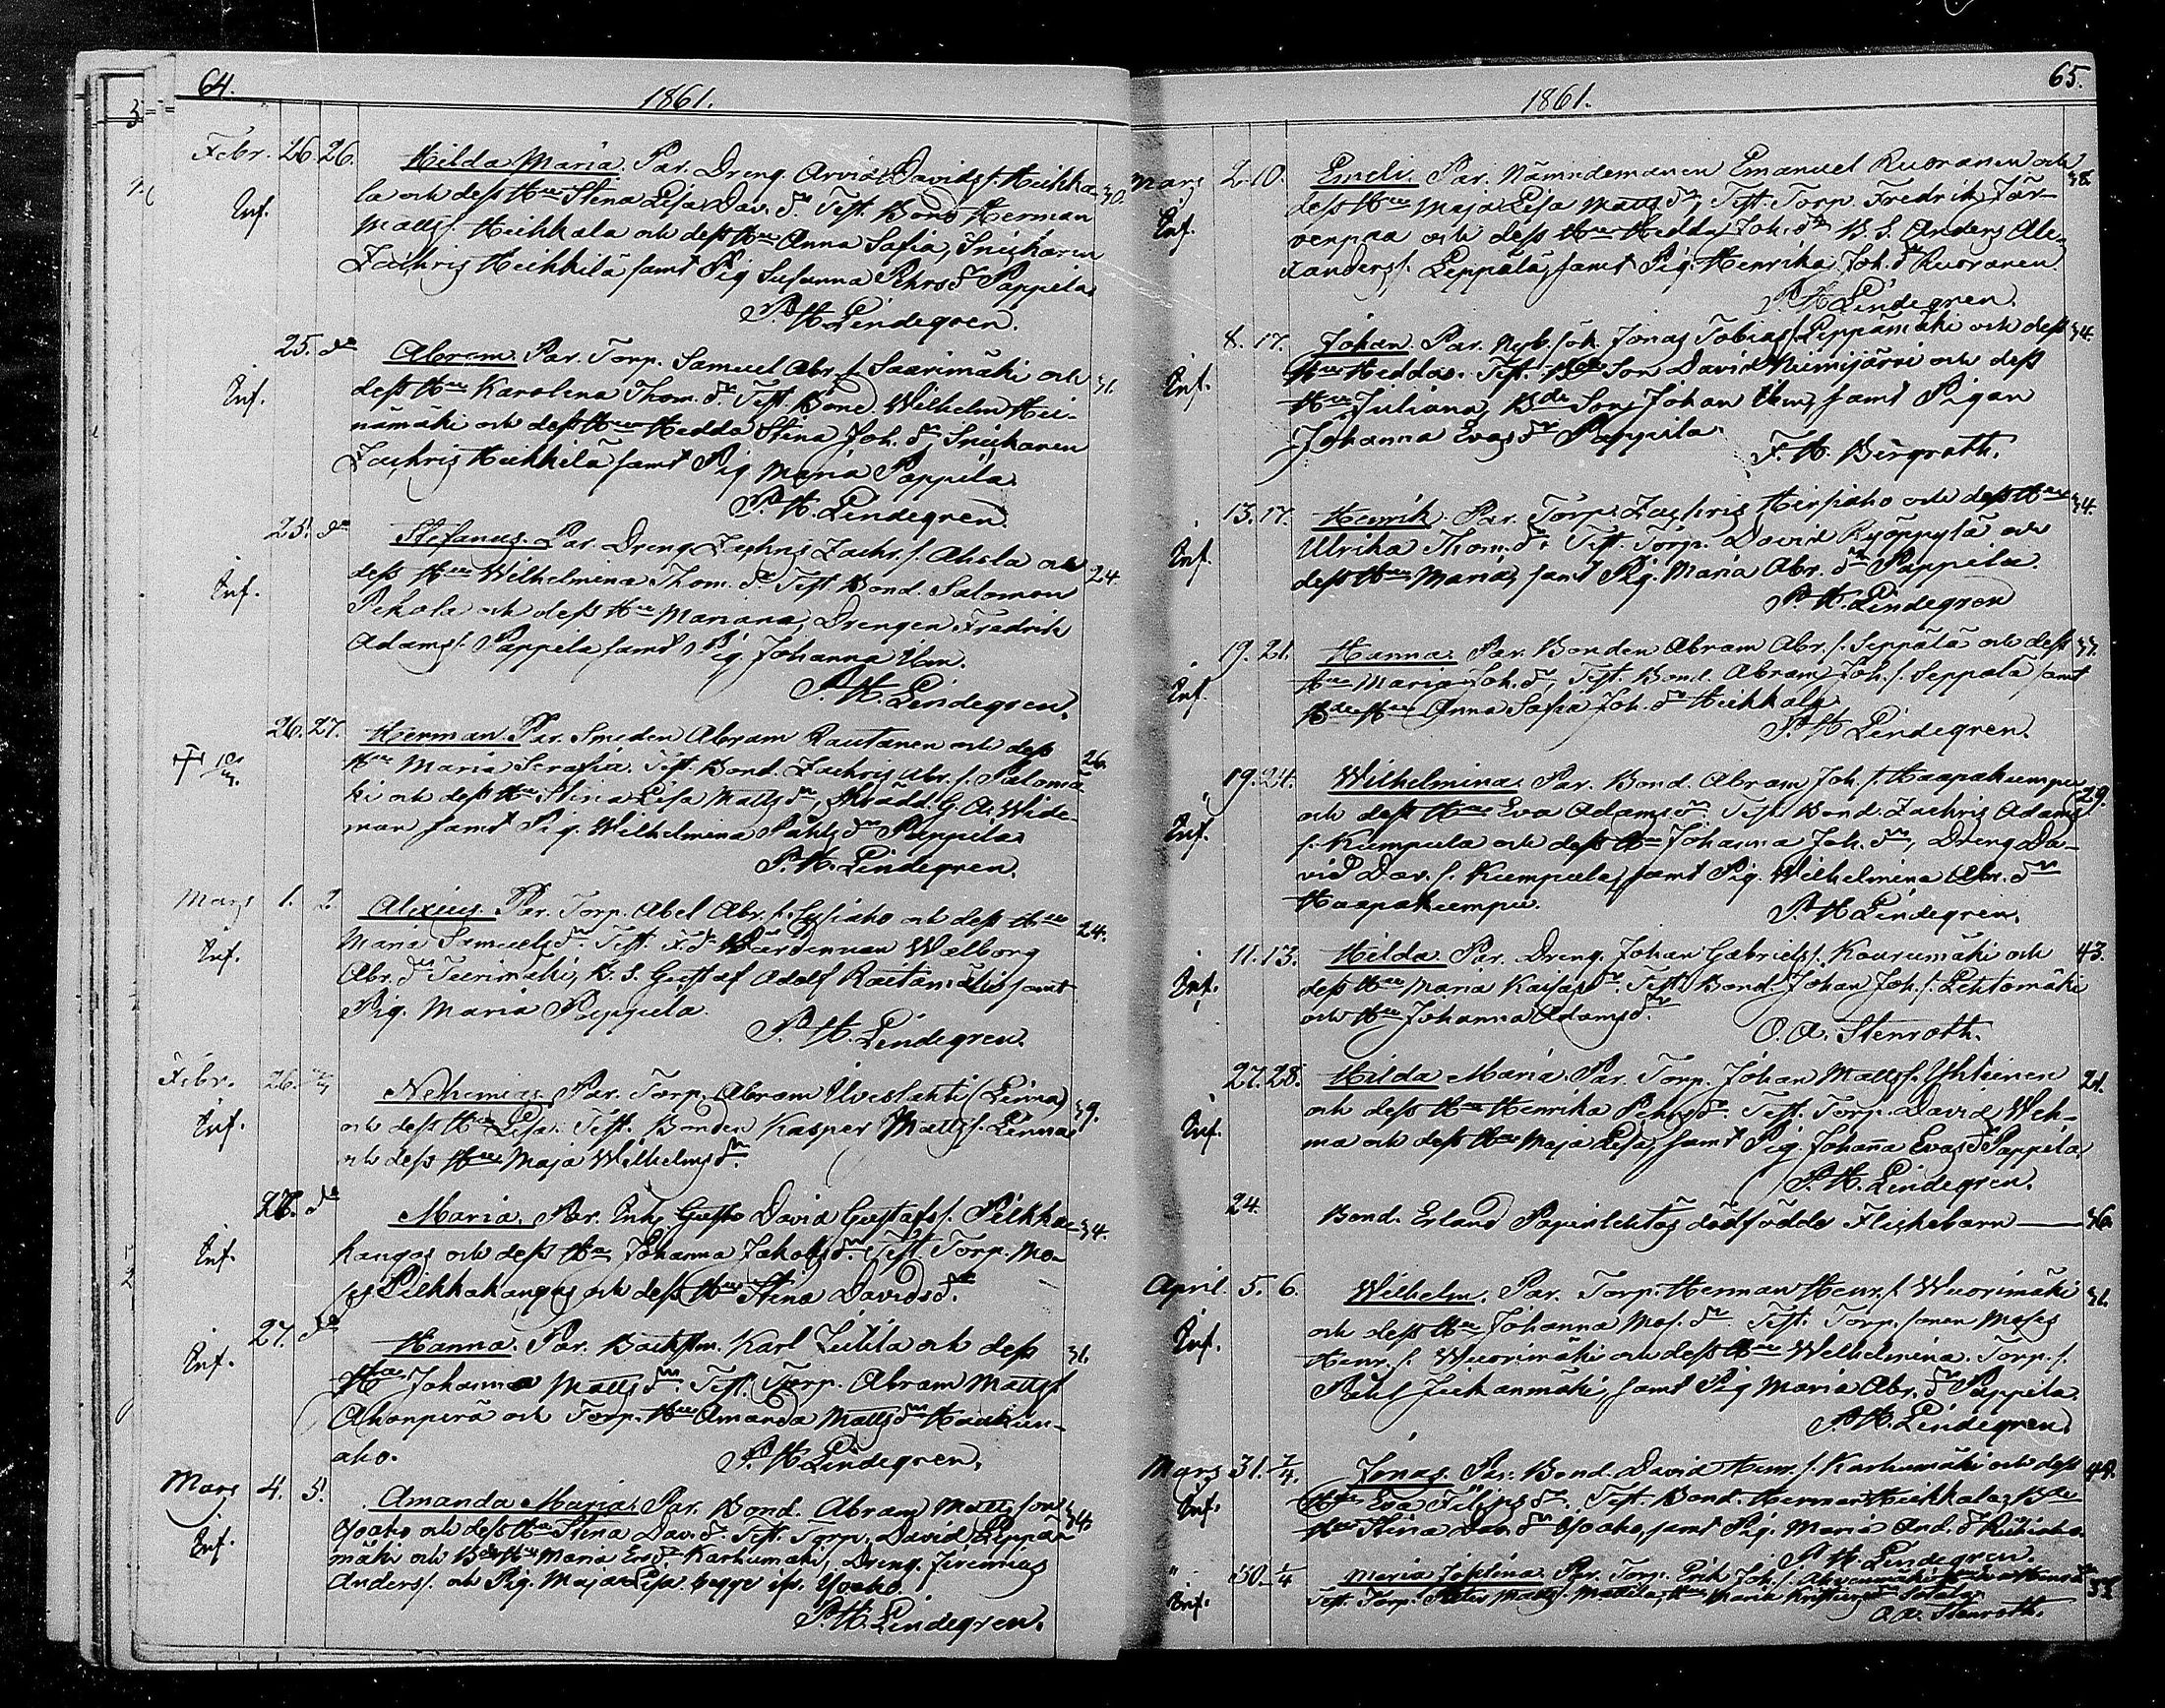 64.
1861.
Febr. 26. 26. Hilda Maria. Par. Dreng. Arvid Davids s. Heikka- 30.
Inf. la och dess Hu Stina Lisa Dav. dr. Test. Bond. Herman
Matts s. Heikkala och dess Hu Anna Safia, Snickaren
Zachris Heikkilä samt Pig Susanna Pehrs dr Pappila.
P. H. Lindegren.
25. do Abram. Par. Torp. Samuel Abr. s. Saarimäki och 31.
Inf. dess Hu Karolina Thom. dr. Test. Bond. Wilhelm Hei-
nämäki och dess Hu Hedda Stina Joh. dr Snickaren
Zachris Heikkilä samt Pig Maria Pappila.
P. H. Lindegren.
25. do Stefanus. Par. Dreng Zachris Zachr. s. Ahola och 24.
Inf. dess Hu Wilhelmina Thom. dr Test. Bond. Salomon
Pekola och dess Hu Mariana, Drengen Fredrik
Adams s. Pappila samt Pig. Johanna ibm.
P. H. Lindegren.
26. 27. Herman. Par. Smeden Abram Rautanen och dess 26.
Hu Maria Serafia. Test. Bond. Zachris Abr. s. Palomä
ki och dess Hu Stina Lisa Matts dr, Skrädd. G. A. Wide-
man samt Pig. Wilhelmina Påhls dr Pappila.
P. H. Lindegren.
Mars 1. 2. Alexius. Par. Torp. Abel Abr. s. Sysiaho och dess Hu 24.
Inf. Maria Samuels dr. Test. Fd Wärdinnan Walborg
Abr. dr Teerimäki, B. S. Gustaf Adolf Rautamäki samt
Pig. Maria Pappila.
P. H. Lindegren.
Febr. 26. Nehemias. Par. Torp. Abram Uveslahti (Linna) 39.
Inf. och dess Hu Lisa. Test. Bonden Kasper Matts s. Linna
och dess Hu Maja Wilhelms dr.
28. do Maria. Par. Inh. David Gustafs s. Pilkka- 34.
Inf. kangas och dess Hu Johanna Jakobs dr. Test. Torp. Mo-
ses Pilkkakangas och dess Hu Stina Davids dr.
27. do Hanna. Par. Backstm. Karl Lillila och dess 31.
Inf. Hu Johanna Matts dr. Test. Torp. Abram Matts s.
Ahonperä och Torp. Hu Amanda Matts dr Haukun-
aho. P. H. Lindegren.
Mars 4. 5. Amanda Maria. Par. Bond. Abram Matts son 34.
Inf. Yoaho och dess Hu Stina Dav. dr. Test. Torp. David Leppä-
mäki och Bde Hu Maria Ers dr Karhumäki, Dreng. Jeremias
Anders s. och Pig. Maja Lisa begge ifr. Yoaho.
P. H. Lindegren.
65.
1861.
Mars 2. 10. Emeli. Par. Nämndemannen Emanuel Ruoranen och 38.
Inf. dess Hu Maja Lisa Matts dr, Test. Torp. Fredrik Jär-
venpää och dess Hu Hedda Joh. dr B. S. Anders Ale-
xanders s. Leppälä, samt Pig. Henrika Joh. dr Ruoranen.
P. H. Lindegren.
8. 17. Johan. Par. Nyb. söh. Jonas Tobias s. Leppämäki och dess 34.
Inf. Hu Hedda. Test. Bde Son David Niinijärvi och dess
Hu Juliana, Bde Son Johan ibm, samt Pigan
Johanna Evas dr Pappila. F. H. Bergroth.
13. 17. Henrik. Par. Torp. Zachris Hirsiaho och dess Hu 34.
Inf. Ulrika Thom. dr. Test. Torp. David Ryöppylä och
dess Hu Maria, samt Pig. Maria Abr. dr Pappila.
P. H. Lindegren
19. 21. Hanna. Par. Bonden Abram Abr. s. Seppälä och dess 37.
Inf. Hu Maria Joh. dr, Test. Bond. Abram Joh. s. Seppälä samt
Bde Hu Anna Safia Joh. dr Heikkala.
P. H. Lindegren.
19. 24. Wilhelmina. Par. Bond. Abram Joh. s. Haapakumpu 29.
Inf. och dess Hu Eva Adams dr. Test. Bond. Zachris Adams
s. Kumpula och dess Hu Johanna Joh. dr, Dreng Da-
vid Dav. s. Kumpula, samt Pig. Wilhelmina Abr. dr
Haapakumpu. P. H. Lindegren.
11. 13. Hilda. Par. Dreng. Johan Gabriels s. Kourumäki och 43.
Inf. dess Hu Maria Kaisas dr. Test. Bond. Johan Joh. s. Lehtomäki
och Hu Johanna Adams dr.
O. A. Stenroth.
27. 28. Hilda Maria. Par. Torp. Johan Matts s. Yhteinen 21.
Inf. och dess Hu Henrika Pehrs dr. Test. Torp. David Weh-
ma och dess Hu Maja Lisa, samt Pig. Johanna Evas dr Pappila.
P. H. Lindegren.
24. Bond. Erland Papinlehtos dödfödda Flickebarn — 36.
April. 5. 6. Wilhelm. Par. Torp. Herman Henr. s. Wuorimäki 31.
Inf. och dess Hu Johanna Mos. dr. Test. Torp. sonen Moses
Henr. s. Wuorimäki och dess Hu Wilhelmina. Torp. s.
Påhl Juhanmäki, samt Pig Maria Abr. dr Pappila.
P. H. Lindegren.
Mars 31. 7/4. Jonas. Par. Bond. David Henr. s. Karhumäki och dess 44.
Inf. Hu Eva Filips dr. Test. Bond. Herman Heikkala, Bde
Hu Stina Dav. dr Yoaho, samt Pig. Maria And. dr
P. H. Lindegren.
" 30. 1/4 Maria Josefina. Par. Torp. Erik Joh. s.
Inf. Test. Torp. Matts s. Mattila, Hu Maria
O. A. Stenroth.